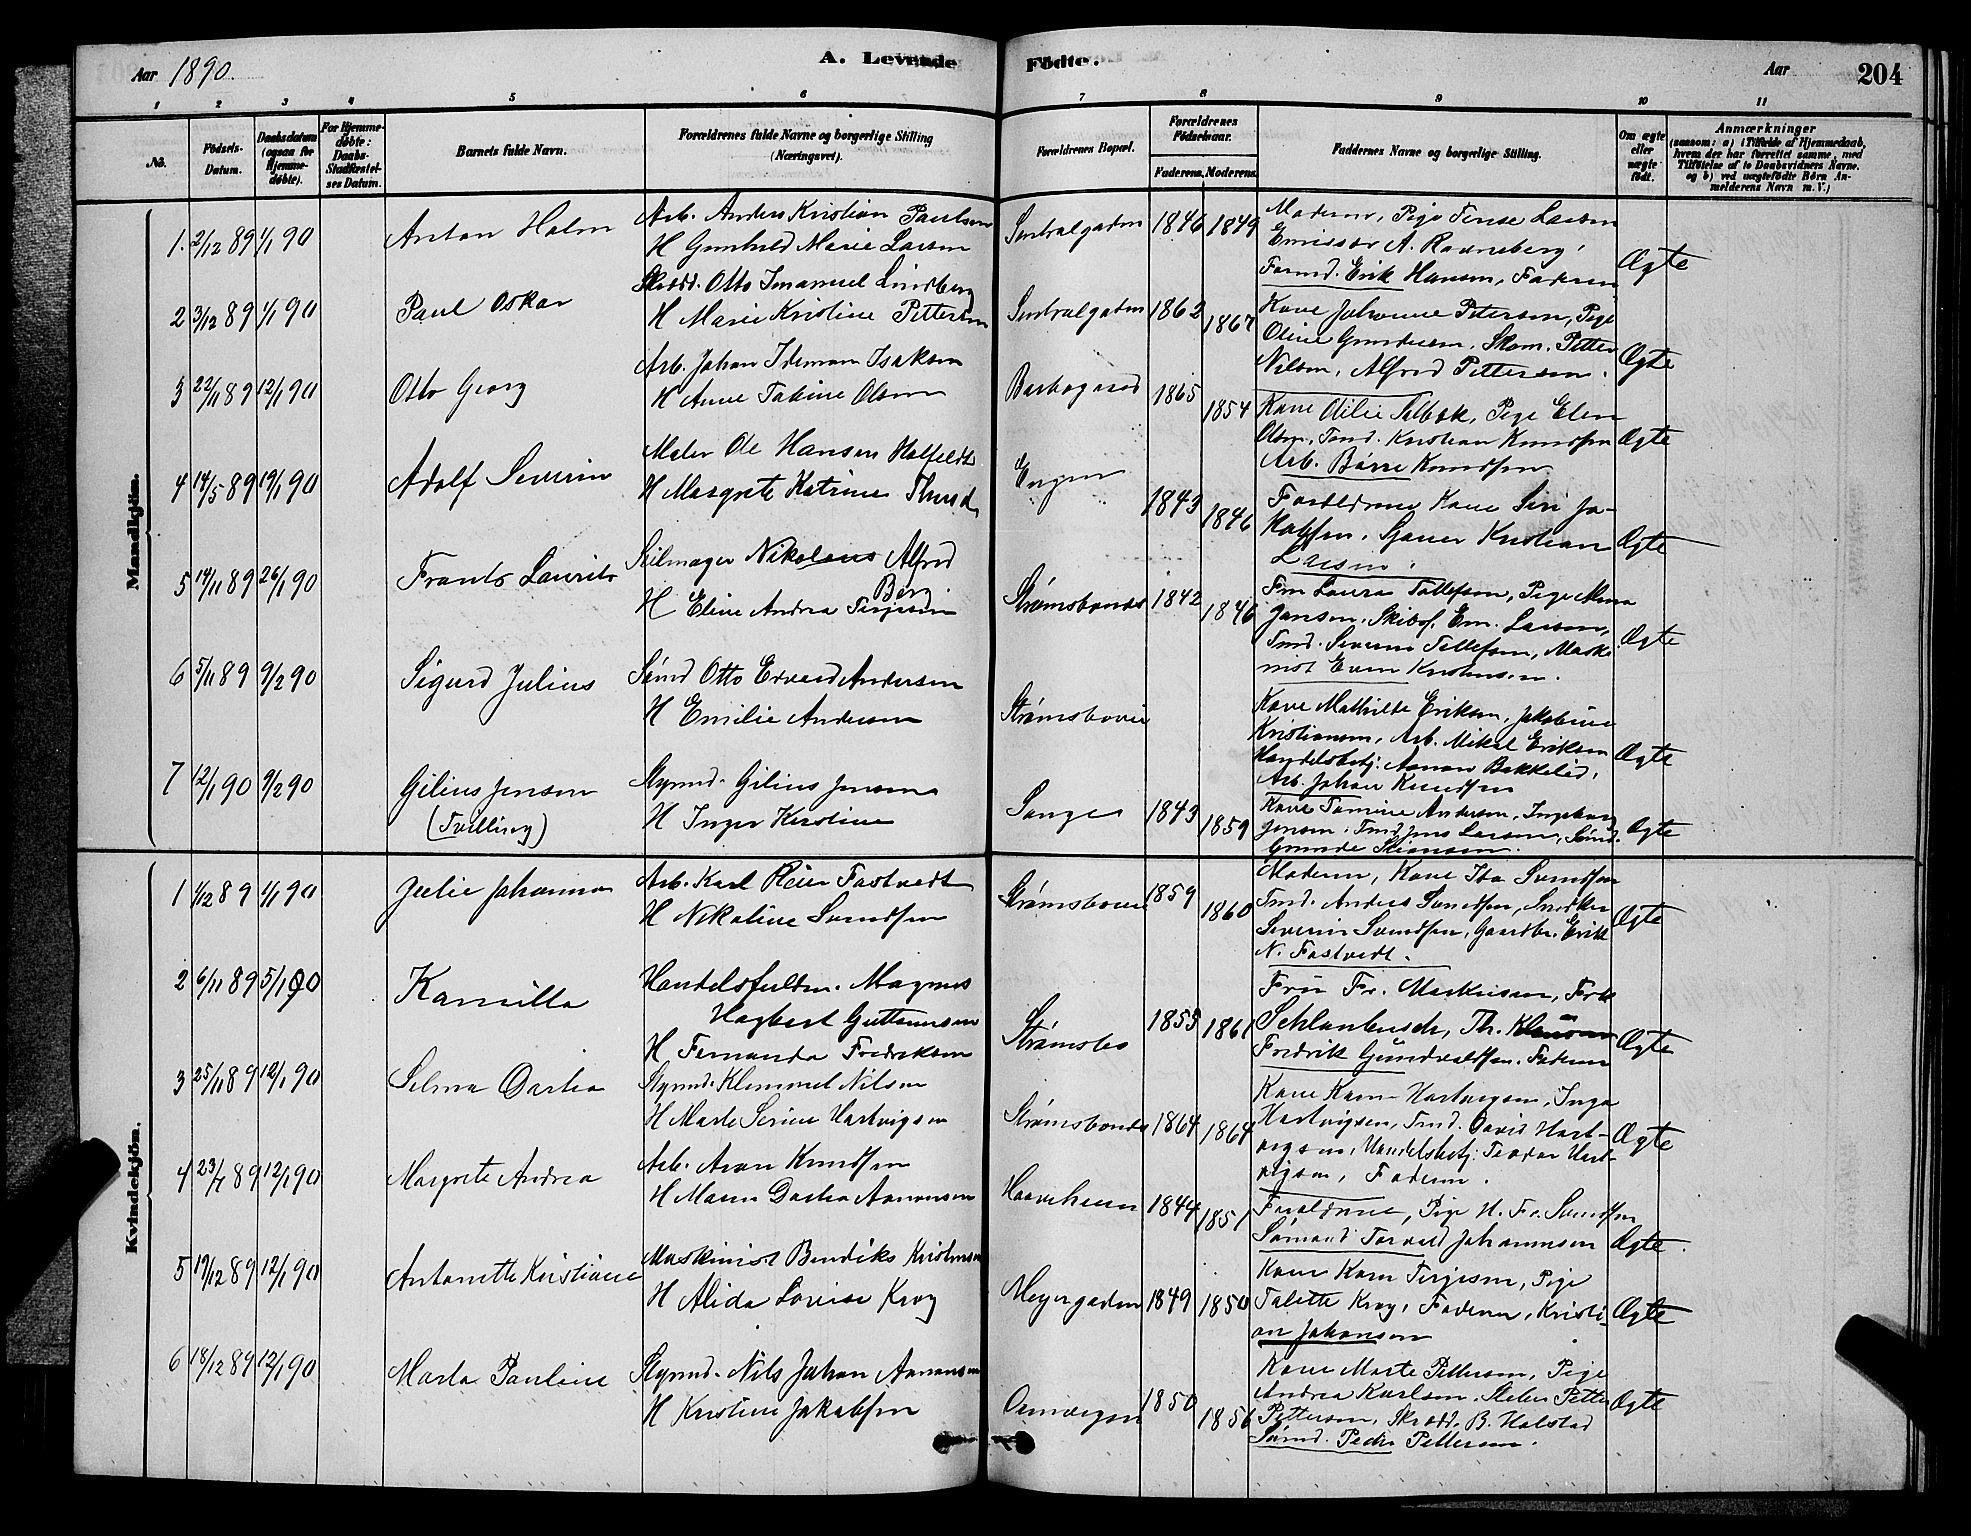 Aar 1890.
A. Levende Födte.
Aar
204
1 2 3 4 5 6 7 8 9 10 11
No.
Födsels-
Datum.
Daabsdatum
(ogsaa for
Hjemme-
døbte).
For Hjemme-
døbte:
Daabs-
Stadfæstel-
ses Datum.
Barnets fulde Navn.
Forældrenes fulde Navne og borgerlige Stilling
(Næringsvei).
Forældrenes Bopæl.
Forældrenes
Födselsaar.
Faderens. Moderens.
Faddernes Navne og borgerlige Stilling.
Om ægte
eller
uægte
født.
Anmærkninger
(saasom: a) i Tilfælde af Hjemmedaab,
hvem der har forrettet samme, med
Tilføielse af to Daabsvidners Navne.
og b) ved uægtefødte Börn An-
melderens Navn m. V.)
Mandkjön.
1. 2/12 89 1/1 90 Anton Holm
Arb. Anders Kristian Paulsen
H Gunhild Marie Larsen
Sentralgaden 1846 1849
Moderen, Pige Tense Larsen
Emissær A. Ranneberg,
Tømd. Erik Hansen, Faderen
Ægte
2 3/12 89 1/1 90 Paul Oskar
Skrædd. Otto Imanuel Lindberg
H Marie Kristine Pettersen
Sentralgaden 1862 1867
Kone Johanne Petersen, Pige
Oline Gundersen, Skom. Petter
Nilsen, Alfred Pettersen.
Ægte
3 22/11 89 12/1 90 Otto Georg
Arb. Johan Isaksen
H Anne Tabine Olsen
Barbogaard 1865 1854
Kone Pige Elen
Olsen, Tmd. Kristian Knudsen
Arb. Børre Knudsen
Ægte
4 14/5 89 19/1 90 Adolf Severin
Maler Ole Hansen Holfeldt
H Margrete Katrine
Engen 1843 1846
Forældrene Kone Siri Ja-
kobsen, Kristian
Larsen.
Ægte
5 14/11 89 26/1 90 Frants Laurits
Seilmager Nikolaus Alfred
Berg
H Eline Andrea Terjesen
Strømsbonde 1842 1846
Fru Laura Tollefsen, Pige Alma
Jansen, Em. Larsen,
Tmd. Severin Tellefsen, Maski-
nist Even Kristensen.
Ægte
6 5/11 89 9/2 90 Sigurd Julius
Sømd Otto Edvard Andersen
H Emilie Andersen
Strømsboveie
Kone Mathilde Eriksen, Jakobine
Kristiansen, Arb. Mikal Eriksen
Handelsbetj: Aanon Bakkelid,
Arb. Johan Knudsen
Ægte
7 12/1 90 9/2 90 Gilius Jensen
(Tvilling)
Styrmd. Gilius Jensen
H Inger Kirstine
Songe 1843 1859
Kone Tomine Andersen, Ingeborg
Jensen, Tmd Jens Larsen, Sømd.
Gunde
Ægte
Kvindekjön.
1 1/12 89 1/1 90 Julie Johanna
Arb. Karl Reier Fastvedt
H Nikoline Svendsen
Strømsboveie 1859 1860
Moderen, Kone Ida Svendsen
Tmd. Anders Svendsen, Snedker
Severin Svendsen, Gaardbr. Erik
N. Fastvedt.
Ægte
2 6/11 89 5/1 90 Kamilla
Handelsfuldm. Magnus
Hagbert Guttormsen
H Fernanda Fredriksen
Strømsbo 1855 1861
Fru Fr. Markussen, Frk
Schlanbusch, Th.
Fredrik Gundvaldsen, Faderen
Ægte
3 25/11 89 12/1 90 Selma Dartea
Styrmd. Klemmet Nilsen
H Marte Serine Hartvigsen
Strømsbonde 1864 1864
Kone Karen Hartvigsen, Inga
Hartvigsen, Tmd. David Hart-
vigsen, Handelsbetj: Teodor Hart-
vigsen, Faderen.
Ægte
4 23/7 89 12/1 90 Margrete Andrea
Arb. Aron Knudsen
H Maren Dartea Aanonsen
Haaveheien 1844 1851
Forældrene, Pige H. Fr. Svendsen
Sømand Torvald Johannesen
Ægte.
5 19/12 89 12/1 90 Antonette Kristiane
Maskinist Bendiks Kristensen
H Alida Lovise Krog
Meyergaden 1849 1850
Kone Karen Terjesen, Pige
Talette Krog, Faderen, Kristi-
an Johansen
Ægte
6 18/12 89 12/1 90 Marta Pauline
Styrmd. Nils Johan Aanonsen
H Kristine Jakobsen
1850 1856
Kone Marte Pettersen, Pige
Andrea Karlsen, Petter
Pettersen, Skrædd. B. Halstad
Sømd. Peder Pettersen.
Ægte